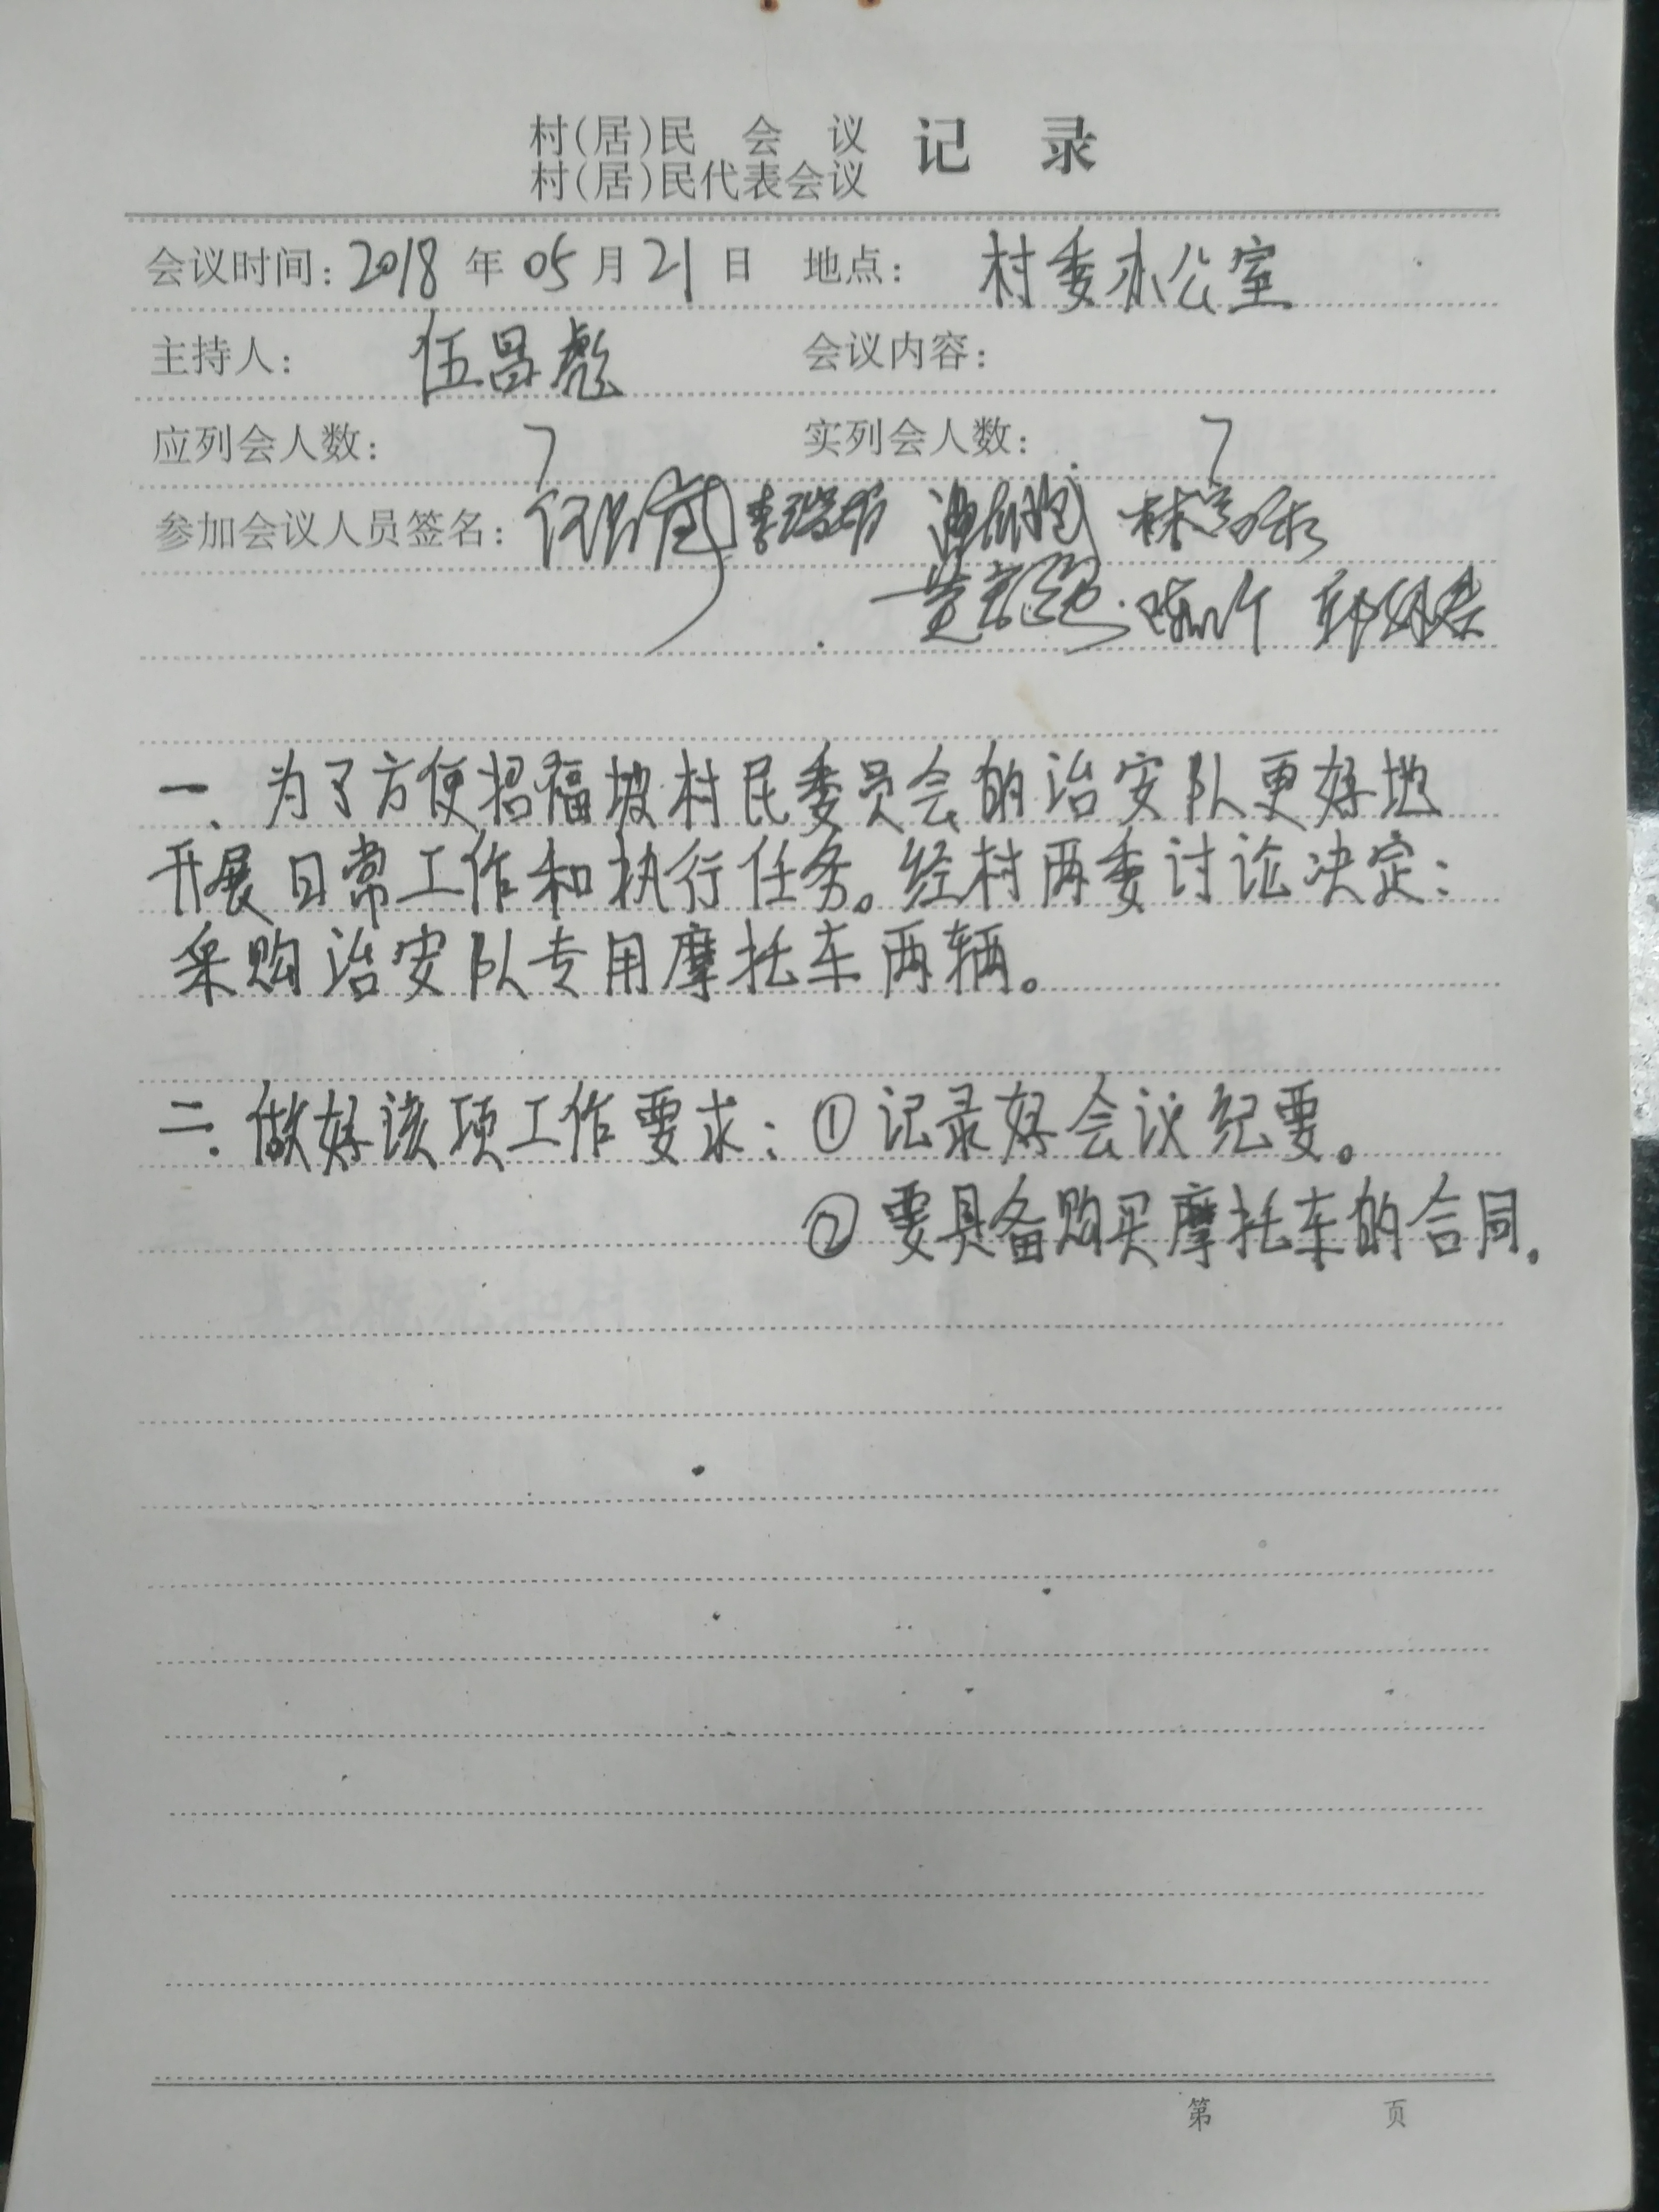 村(居)民 会 议 记 录
村(居)民代表会议
会议时间: 2018 年 05 月 21 日 地点: 村委办公室
主持人: 伍昌彪 会议内容:
应列会人数: 7 实列会人数: 7
参加会议人员签名:
一、为了方便招福坡村民委员会的治安队更好地
开展日常工作和执行任务。经村两委讨论决定:
采购治安队专用摩托车两辆。
二.做好该项工作要求:①记录好会议纪要。
②要具备购买摩托车的合同.
第 页